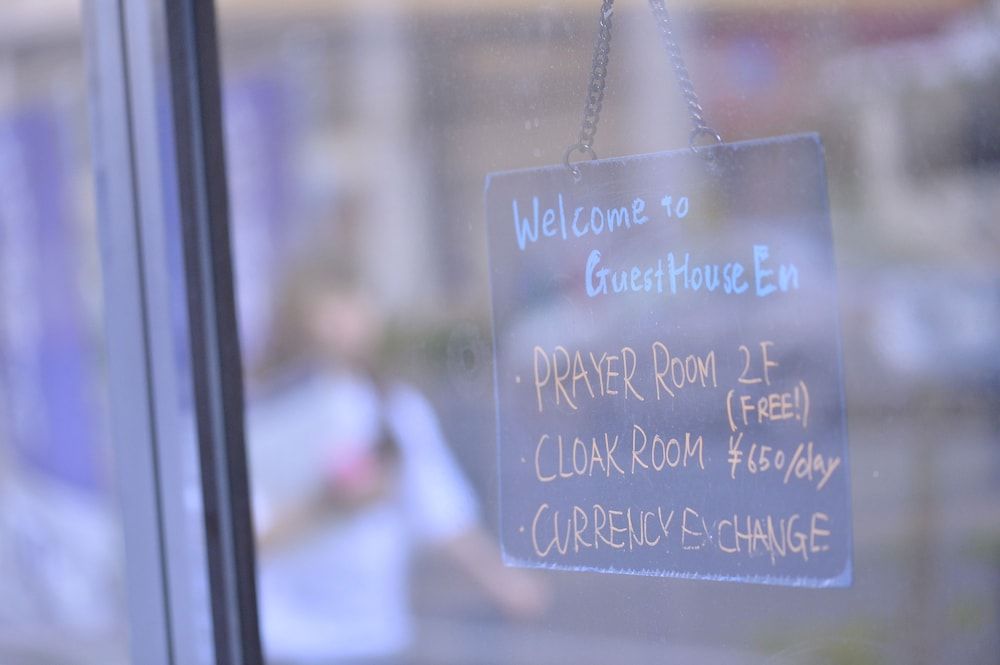 Welcome to
GuestHouse En
・PRAYER ROOM 2F
(FREE!)
・CLOAK ROOM ¥650/day
・CURRENCY EXCHANGE